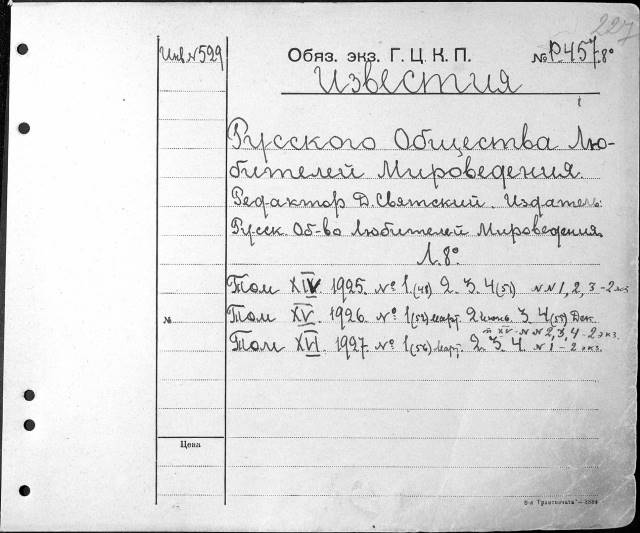 227
Инв N 529
Обяз. экз. Г. Ц. К. П.
№ Р457.8°
Известия
Русского Общества Лю-
бителей Мироведения.
Редактор Д. Святский. Издатель:
Русск. Об-во Любителей Мироведения.
Л. 8°
Том XIV. 1925. № 1.(48) 2. 3. 4(51) NN 1, 2, 3 - 2 экз
Том XV. 1926. № 1(52) март. 2 июнь. 3. 4(55) Дек.
т XV - N N 2, 3, 4 - 2 экз.
Том XVI. 1927. № 1(56) март. 2. 3. 4. N 1 - 2 экз.
№
Цена